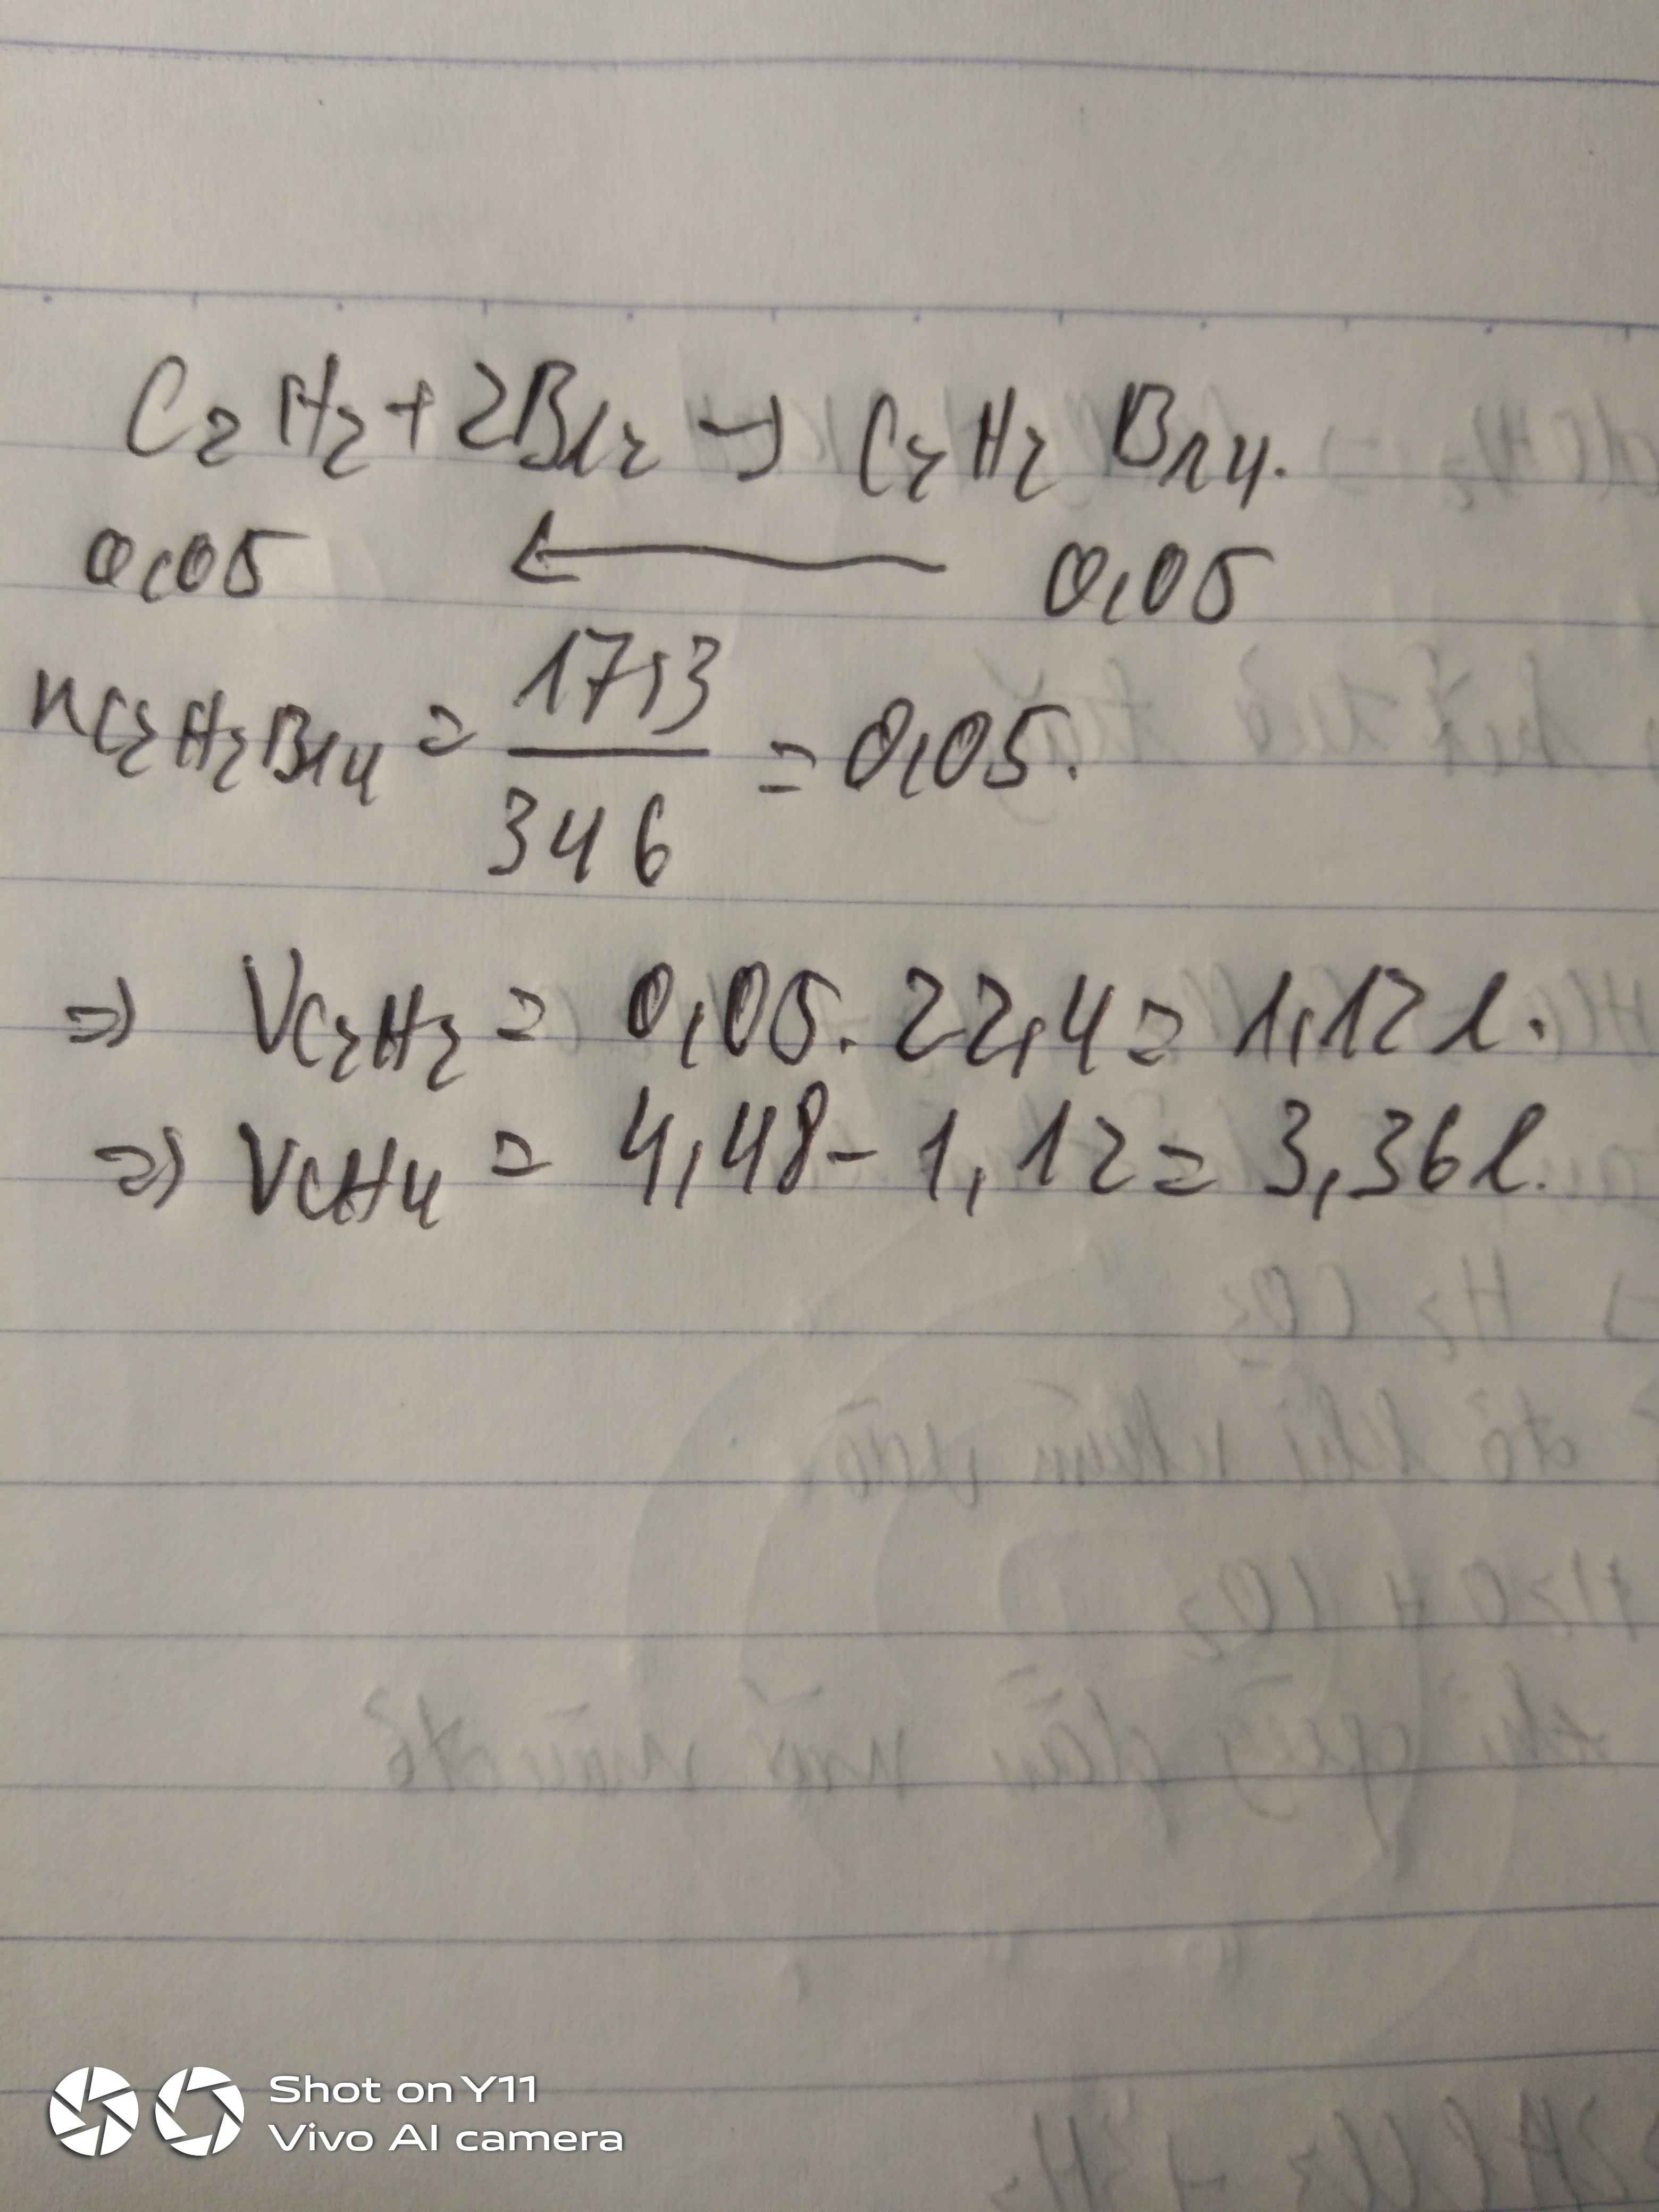 C2H2 + 2Br2 → C2H2Br4.
0,05 ← 0,05
nC2H2Br4 = 17,3 / 346 = 0,05.
=> VC2H2 = 0,05. 22,4 = 1,12 l.
=> VCH4 = 4,48 - 1,12 = 3,36 l.
Shot on Y11
Vivo AI camera